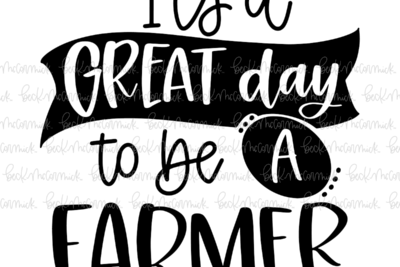 It's a
GREAT day
to be A
FARMER